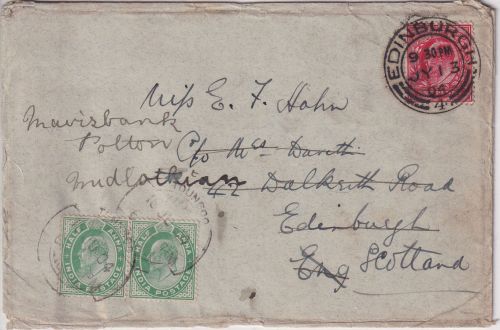 EDINBURGH
9 30 PM
JY 13
04
Miss E. F. Hahn
Maviisbank
Polton
Midlothian
c/o Mrs
42 Dalkeith Road
Edinburgh
Eng Scotland
HALF ANNA
INDIA POSTAGE
HALF ANNA
INDIA POSTAGE